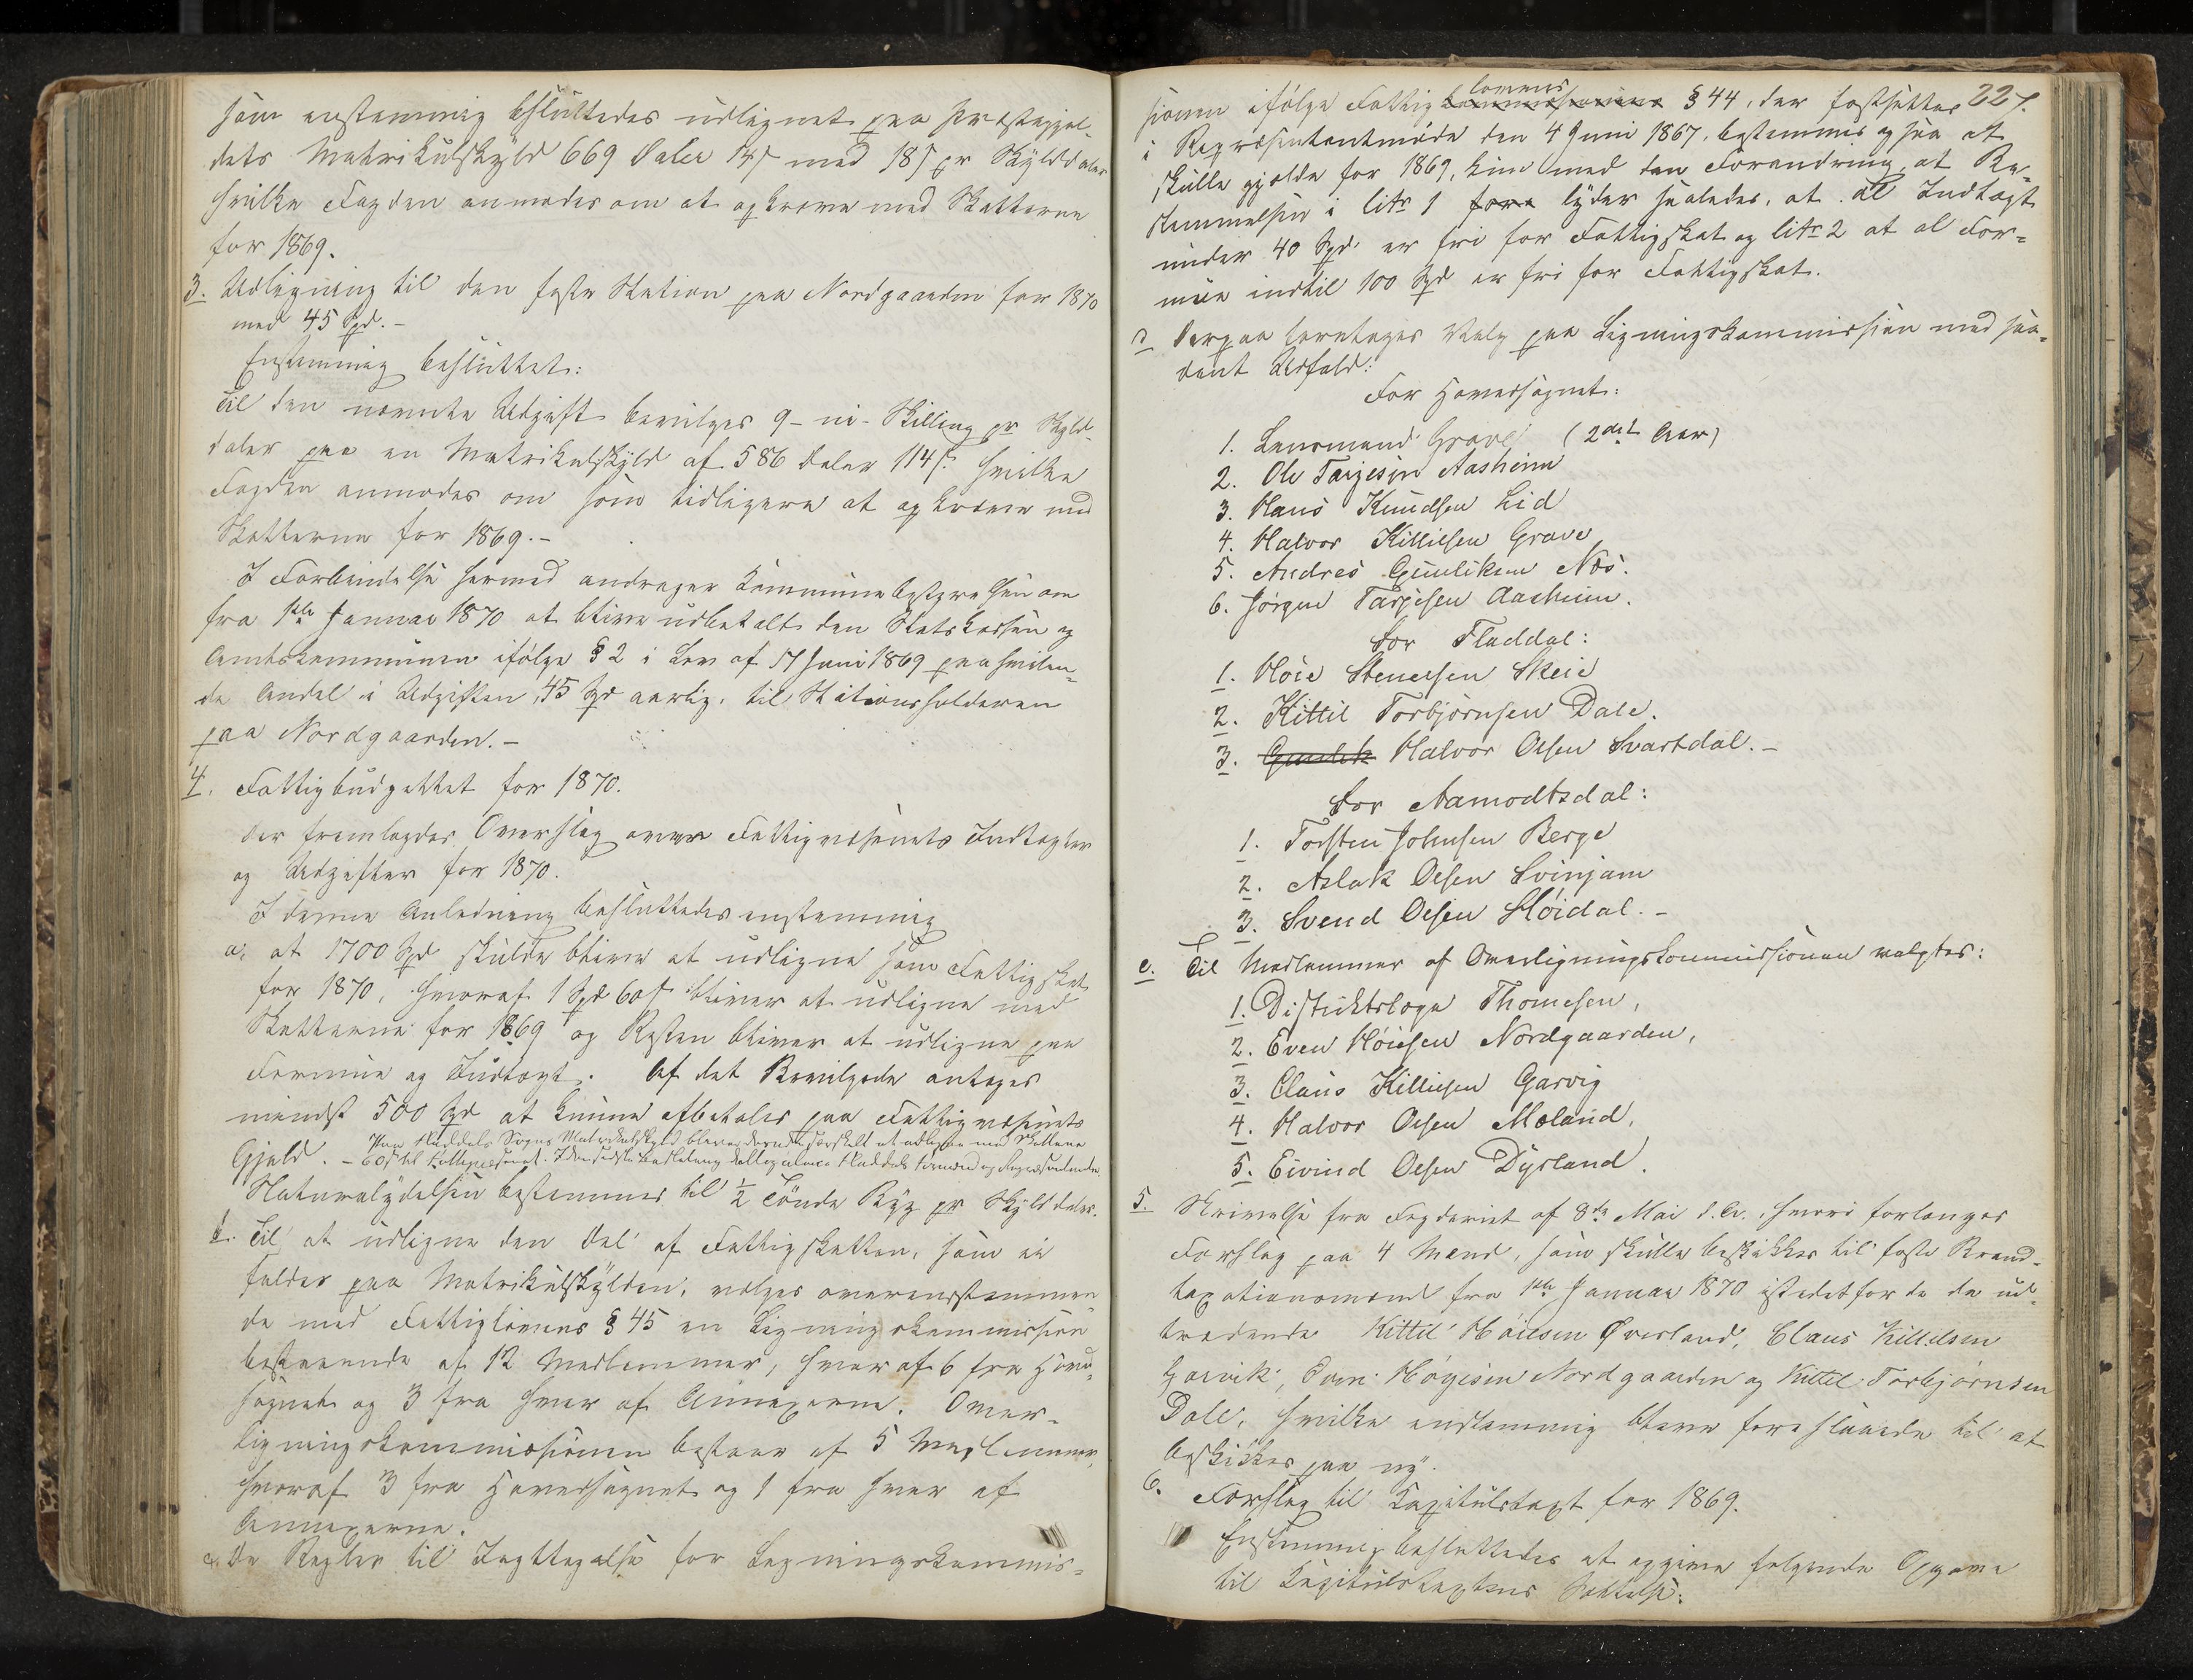 som enstemmig besluttedes udlignet paa Præstegjel-
dets Matrikulskyld 669 Daler med 18 s pr Skylddaler
hvilke Fogden anmodes om at opkræve med Skatterne
for 1869.
3. Udligning til den faste Station paa Nordgaarden for 1870
med 45 Spd. -
Enstemmig besluttet:
Til den nævnte Udgift bevilges 9 - ni - Skilling pr Skyld-
daler paa en Matrikulskyld af 586 Daler 114 s. hvilke
Fogden anmodes om som tidligere at opkræve med
Skatterne for 1869. -
I Forbindelse hermed andrager Kommunebestyrelsen om
fra 1ste Januar 1870 at blive udbetalt den Statskassen og
Amtskommunen ifølge § 2 i Lov af 17 Juni 1869 paahvilen-
de Andel i Udgiften, 45 Spd aarlig, til Stationsholderen
paa Nordgaarden. -
4. Fattigbudgettet for 1870.
Der fremlagdes Overslag over Fattigvæsenets Indtægter
og Udgifter for 1870.
I denne Anledning besluttedes enstemmig
a, at 1700 Spd skulde blive at udligne som Fattigskat
for 1870, hvoraf 1 Spd 60 s bliver at udligne med
Skatterne for 1869 og Resten bliver at udligne paa
Formue og Indtægt. Af det Bevilgede antages
mindst 500 Spd at kunne afbetales paa Fattigvæsenets
Paa Fladdals Sogns Matrikulskyld bliver desuden særskilt at udligne med Skattene
Gjeld. - 60 s til Fattigvæsenet. I den sidste Beslutning deltog alene Fladdals Formænd og Repræsentanter.
Naturalydelsen bestemmes til ½ Tønde Byg pr Skylddaler.
b. Til at udligne den Del af Fattigskatten, som ei
falder paa Matrikulskylden, vælges overensstemmen-
de med Fattiglovens § 45 en Ligningskommission
bestaaende af 12 Medlemmer, hvoraf 6 fra Hoved-
sognet og 3 fra hver af Annexerne. Over-
ligningskommissionen bestaar af 5 Medlemmer,
hvoraf 3 fra Hovedsognet og 1 fra hver af
Annexerne.
c. De Regler til Iagttagelse for Ligningskommis-
22 s.
lovens
sionen ifølge Fattig § 44, der fastsattes
i Repræsentantmøde den 4 Juni 1867, bestemmes ogsaa at
skulle gjælde for 1869, kun med den Forandring, at Be-
stemmelsen i litr 1 lyder saaledes, at al Indtægt
under 40 Spd er fri for Fattigskat og litr 2 at al For-
mue indtil 100 Spd er fri for Fattigskat.
d Derpaa foretoges Valg paa Ligningskommission med saa-
dant Udfald:
For Hovedsognet:
1. Lensmand Grave (2det Aar)
2. Ole Tarjesen Aasheim
3. Hans Knudsen Lid
4. Halvor Kittilsen Grave
5. Andres Gunliksen Næs.
6. Jørgen Tarjesen Aasheim.
For Fladdal:
1. Høie Stenersen Skeie
2. Kittil Torbjørnsen Dale.
3. Gunlik Halvor Olsen Svartdal. -
For Aamodtsdal:
1. Torsten Johnsen Berge
2. Aslak Olsen Svinjam
3. Svend Olsen Høidal. -
e. Til Medlemmer af Overligningskommissionen valgtes:
1. Distriktslæge Thomesen,
2. Even Høiesen Nordgaarden,
3. Claus Kittilsen Garvig
4. Halvor Olsen Moland,
5. Eivind Olsen Dyrland.
5. Skrivelse fra Fogderiet af 8de Mai d. A., hvori forlanges
Forslag paa 4 Mænd, som skulle beskikkes til faste Brand-
taxationsmænd fra 1ste Januar 1870 istedetfor de da ud-
trædende Kittil Høiesen Øverland, Claus Kittilsen
Garvik, Even Høyesen Nordgaarden og Kittil Torbjørnsen
Dale, hvilke enstemmig bleve foreslaaede til at
beskikkes paa ny.
6. Forslag til Kapitulstaxt for 1869.
Enstemmig besluttedes at opgive følgende Opgave
til Kapitulstaxtens Sættelse: